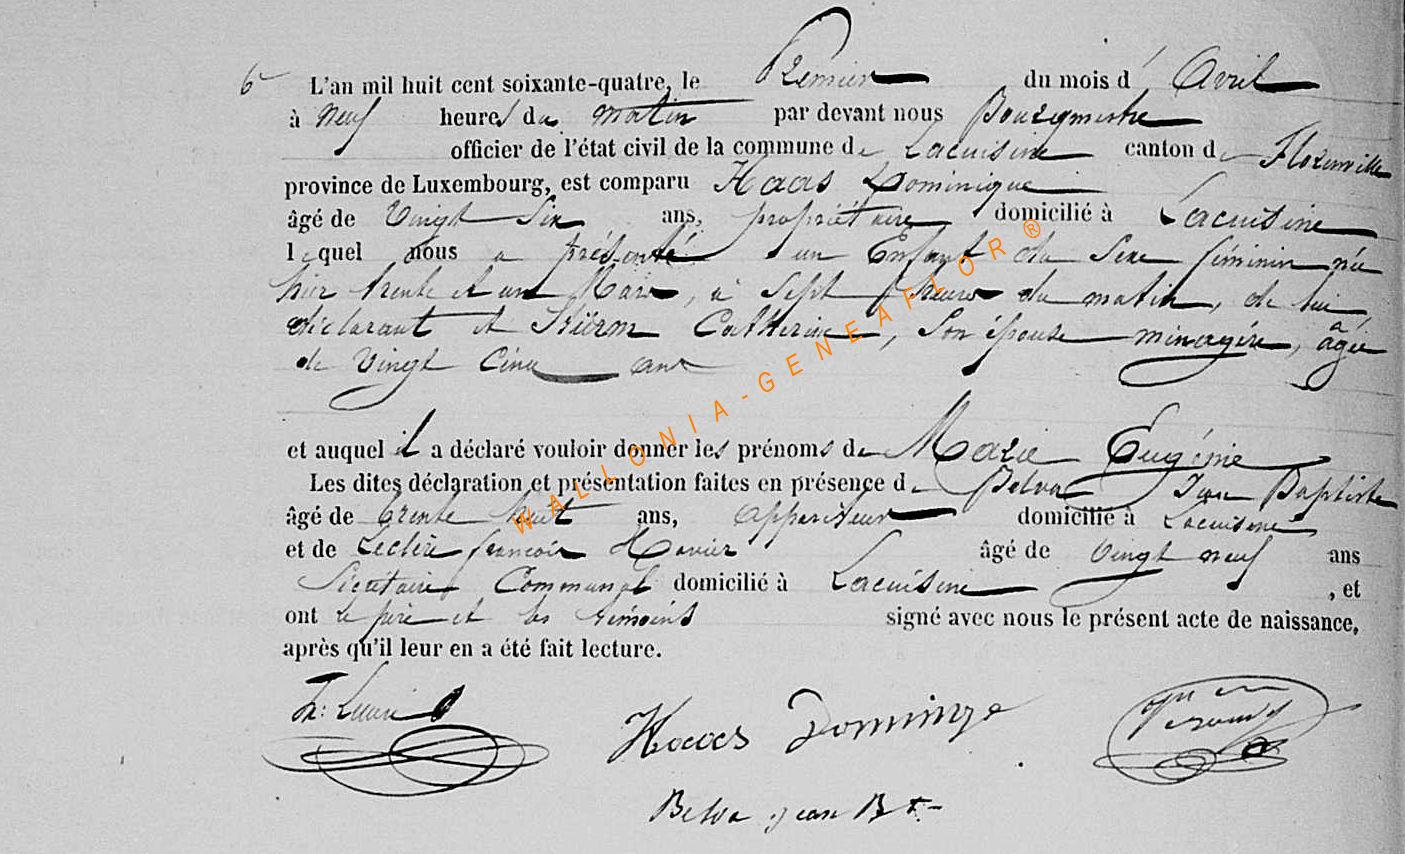 6 L'an mil huit cent soixante-quatre, le Premier du mois d'Avril
à neuf heures du matin par devant nous Bourgmestre
officier de l'état civil de la commune de Lacuisine canton de Florenville
province de Luxembourg, est comparu Haas Dominique
âgé de Vingt Six ans, propriétaire domicilié à Lacuisine
lequel nous a présenté un Enfant du Sexe féminin née
hier trente et un Mars, à Sept heures du matin, de lui
déclarant et Stürm Catherine, Son épouse ménagère, âgée
de Vingt Cinq ans
et auquel il a déclaré vouloir donner les prénoms de Marie Eugénie
Les dites déclaration et présentation faites en présence de Belva Jean Baptiste
âgé de trente huit ans, appariteur domicilié à Lacuisine
et de Leclère françois Xavier âgé de Vingt neuf ans
Secrétaire Communal domicilié à Lacuisine, et
ont le père et les témoins signé avec nous le présent acte de naissance,
après qu'il leur en a été fait lecture.
Haas Dominique
Belva jean Bt
WALLONIA-GENEAFLOR®